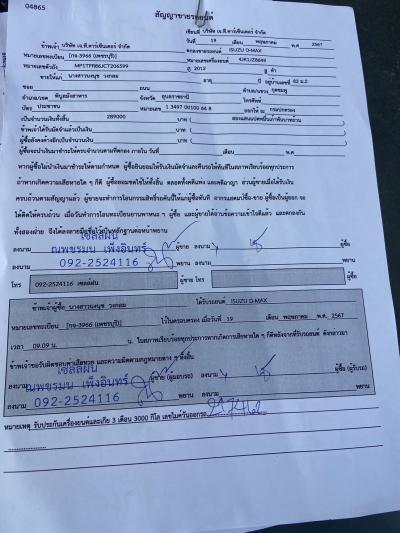 04865
สัญญาขายรถยนต์
เขียนที่ บริษัท เจ.พี.คาร์เซ็นเตอร์ จำกัด
วันที่ 19 เดือน พฤษภาคม พ.ศ. 2567
ข้าพเจ้า บริษัท เจ.พี.คาร์เซ็นเตอร์ จำกัด
ตกลงขายรถยนต์ ISUZU D-MAX
หมายเลขทะเบียน [กจ-3966 (เพชรบุรี)] หมายเลขเครื่องยนต์ 4JK1JZ8649
หมายเลขตัวถัง MP1TFR86JCT206599 ปี 2012 สี ดำ
ขายให้แก่ นางสาวนงนุช วงกลม อายุ ปี อยู่บ้านเลขที่ 83 ม.2
ซอย ถนน ตำบล/แขวง กุดชมภู
อำเภอ/เขต พิบูลมังสาหาร จังหวัด อุบลราชธานี โทรศัพท์
บัตร ประชาชน เลขที่ 1 3497 00100 64 8 ออกให้ ณ กรมปกครอง
เป็นจำนวนเงินทั้งสิ้น 289000 บาท ( สองแสนแปดหมื่นเก้าพันบาทถ้วน )
ข้าพเจ้าได้รับมัดจำแล้วเป็นเงิน บาท ( )
ผู้ซื้อยังคงค้างอีกเป็นจำนวนเงิน บาท ( )
ผู้ซื้อจะนำเงินมาชำระให้ครบจำนวนตามที่ตกลง ภายใน วันที่ เดือน พ.ศ.
หากผู้ซื้อไม่นำเงินมาชำระให้ตามกำหนด ผู้ซื้อยินยอมให้รับเงินมัดจำและคืนรถให้ทันทีในสภาพเรียบร้อยทุกประการ
ถ้าหากเกิดความเสียหายใด ๆ ก็ดี ผู้ซื้อยอมชดใช้ให้ทั้งสิ้น ตลอดทั้งคดีแพ่ง และคดีอาญา ส่วนผู้ขายเมื่อได้รับเงิน
ครบถ้วนตามสัญญาแล้ว ผู้ขายจะทำการโอนกรรมสิทธิ์รถคันนี้ให้แก่ผู้ซื้อทันที
ผู้ซื้อ และผู้ขายได้อ่านข้อความเข้าใจดีแล้ว และตกลงกัน
ทั้งสองฝ่าย จึงได้ลงลายมือชื่อไว้เป็นหลักฐานต่อหน้าพยาน
ลงนาม เซลล์ฝน ผู้ขาย ลงนาม ผู้ซื้อ
ลงนาม ณพชรมน เพ็งอินทร์ พยาน ลงนาม พยาน
092-2524116
โทร 092-2524116 เซลล์ฝน ผู้ขาย โทร ผู้ซื้อ
ข้าพเจ้าผู้ซื้อ นางสาวนงนุช วงกลม ได้รับรถยนต์ ISUZU D-MAX
หมายเลขทะเบียน [กจ-3966 (เพชรบุรี)] ไว้ในครอบครอง เมื่อวันที่ 19 เดือน พฤษภาคม พ.ศ. 2567
เวลา 09.09 น.
ลงนาม เซลล์ฝน ผู้ขาย (ผู้มอบรถ) ลงนาม ผู้ซื้อ (ผู้รับรถ)
ลงนาม ณพชรมน เพ็งอินทร์ พยาน ลงนาม พยาน
092-2524116
หมายเหตุ รับประกันเครื่องยนต์และเกียร์ 3 เดือน 3000 กิโล เลขไมล์วันออกรถ